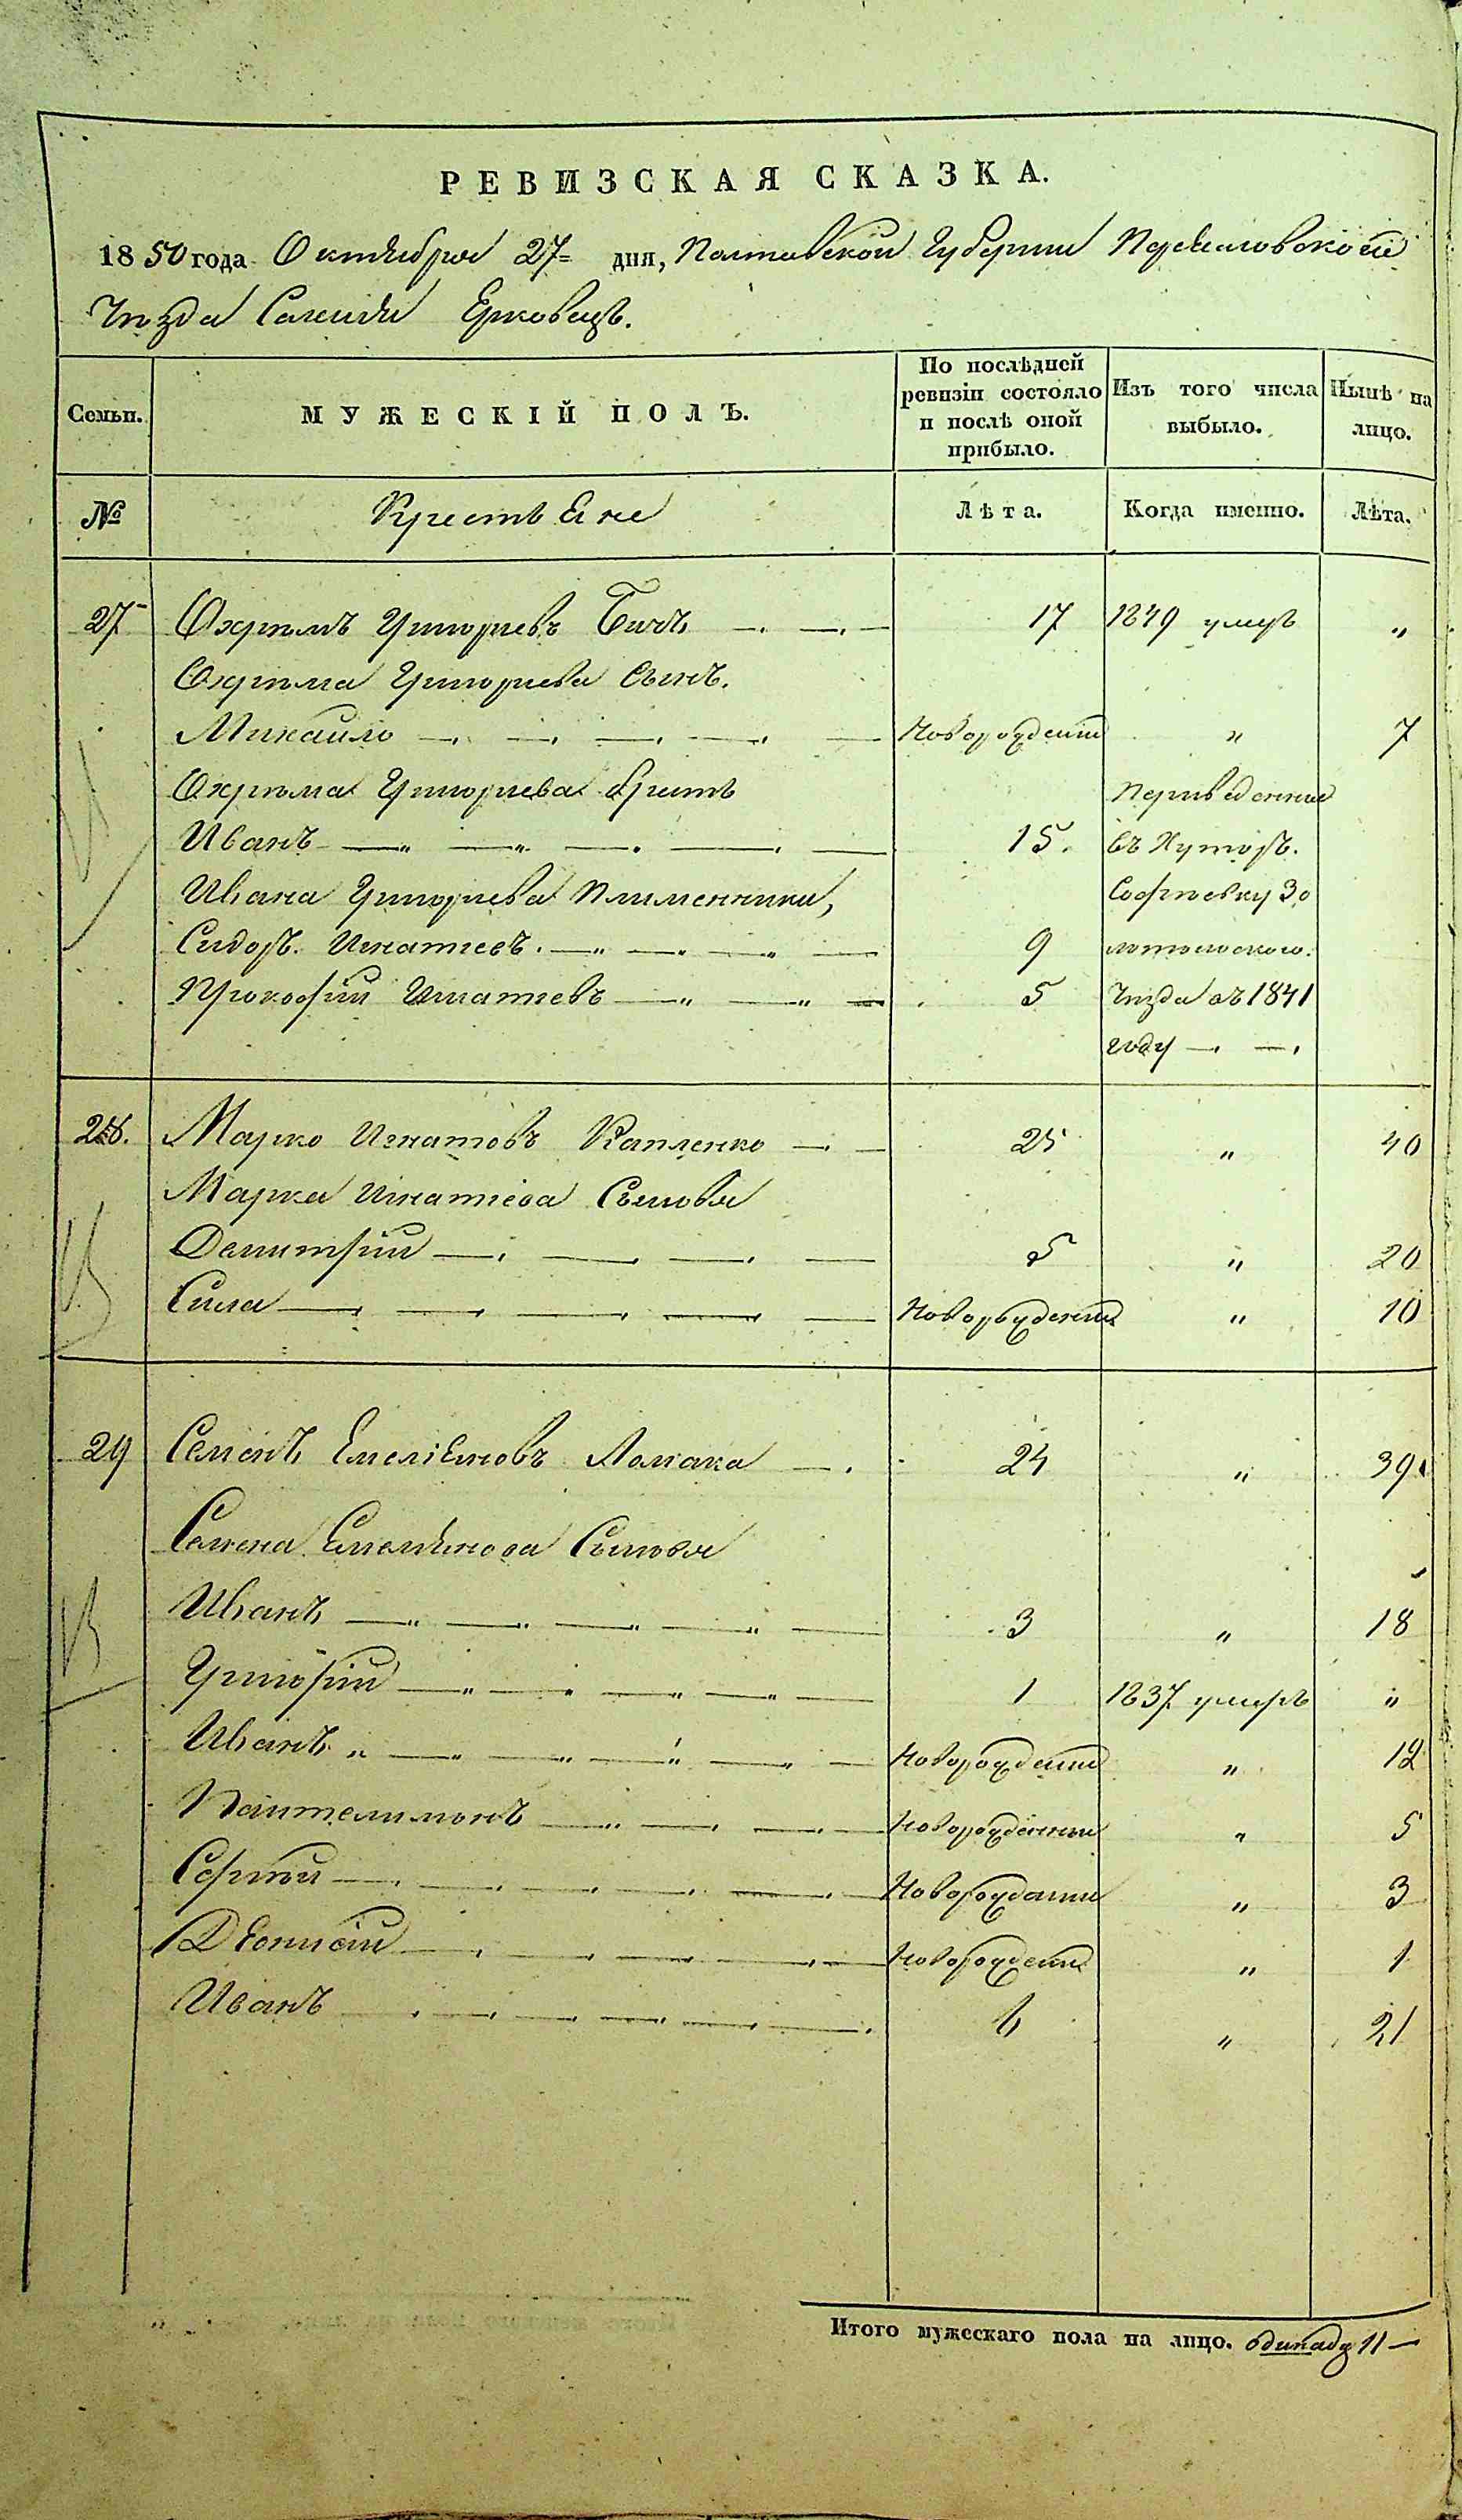 РЕВИЗСКАЯ СКАЗКА.
1850 года Октября 27= дня, Полтавской Губернии Переяславского
Уѣзда Селения Ерковецъ.
Семьи. МУЖЕСКІЙ ПОЛЪ. По послѣдней ревизіи состояло и послѣ оной прибыло. Изъ того числа выбыло. Нынѣ на лицо.
№ Крестьяне Лѣта. Когда именно. Лѣта.
27 Охримъ Григориевъ Бичь 17 1849 умеръ "
Охрима Григориева Сынъ.
Михайло Новорожденный " 7
Охрима Григориева братъ Переведенны
Иванъ 15. въ Хуторъ.
Ивана Григориева племенники, Софиевку Зо
Сидоръ Игнатиевъ. 9 лотоноского.
Прокофий Игнатиевъ 5 Уѣзда въ 1841
году
28. Марко Игнатовъ Капленко 25 " 40
Марка Игнатиева Сыновья
Демитрий 5 " 20
Сила Новорожденный " 10
29 Семенъ Емелiяновъ Ломака 24 " 39
Семена Емельянова Сыновья
Иванъ 3 " 18
Григорий 1 1837 умеръ "
Иванъ Новорожденный " 12
Пантелимонъ Новорожденный " 5
Сергий Новорожденный " 3
Деонисий Новорожденный " 1
Иванъ 6 " 21
Итого мужескаго пола на лицо. одинадц 11